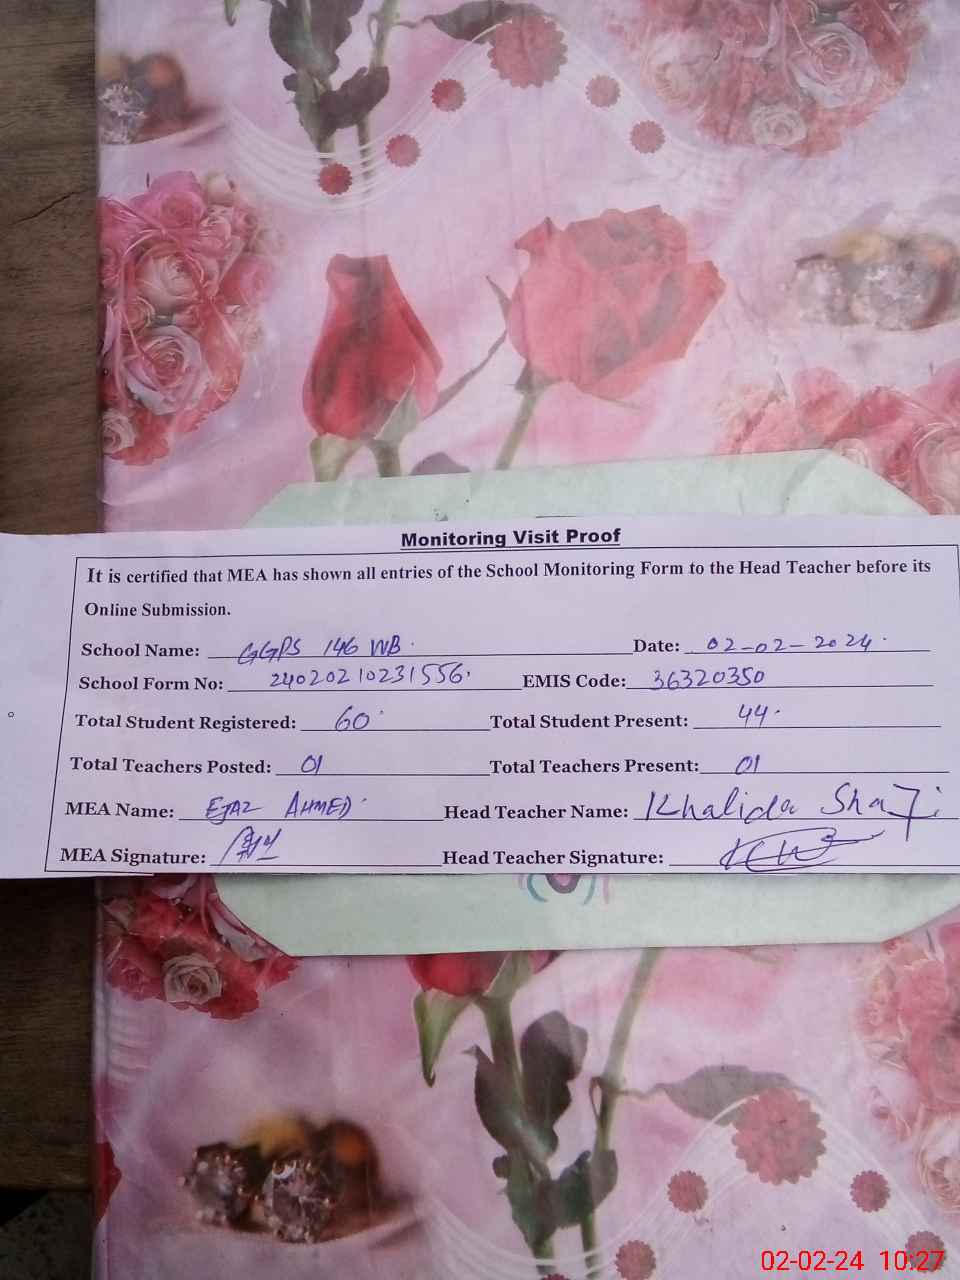 Monitoring Visit Proof
It is certified that MEA has shown all entries of the School Monitoring Form to the Head Teacher before its
Online Submission.
School Name: GGPS 146 WB. Date: 02-02-2024.
School Form No: 24020210231556. EMIS Code: 36320350
Total Student Registered: 60 Total Student Present: 44.
Total Teachers Posted: 01 Total Teachers Present: 01
MEA Name: EJAZ AHMED Head Teacher Name: Khalida Shafi
MEA Signature: Head Teacher Signature:
02-02-24 10:27